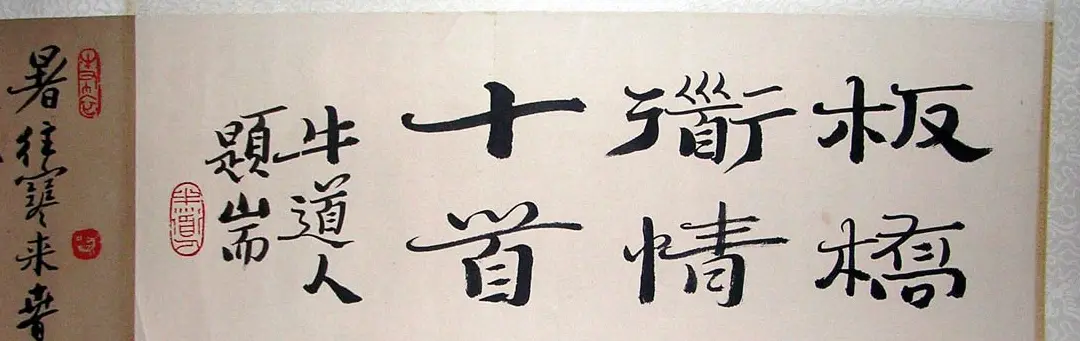 板橋
衜情
十首
牛道人
題耑
暑往寒来春